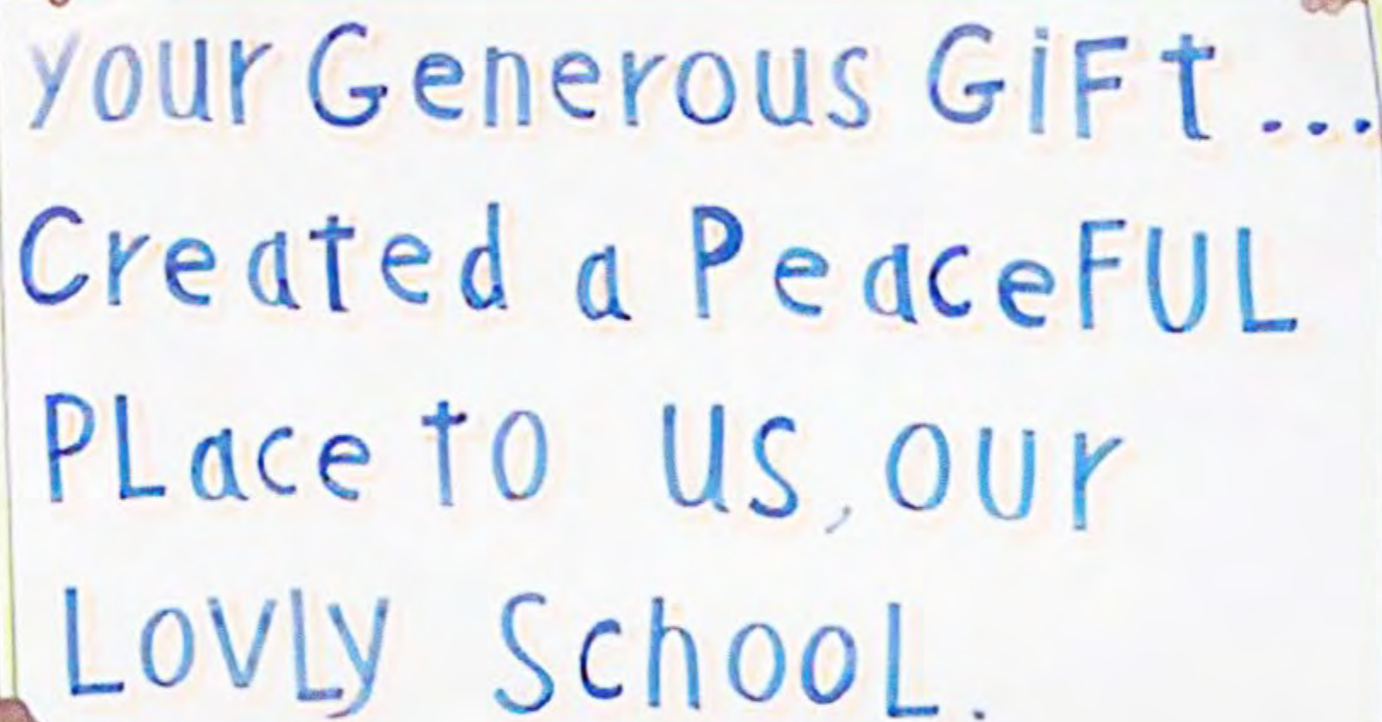 your Generous GiFt...
Created a PeaceFUL
PLace to us, our
LovLy SchooL.